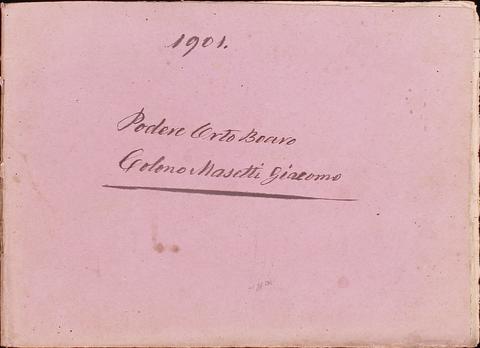 1901.
Podere Orto Boaro
Colono Masetti Giacomo